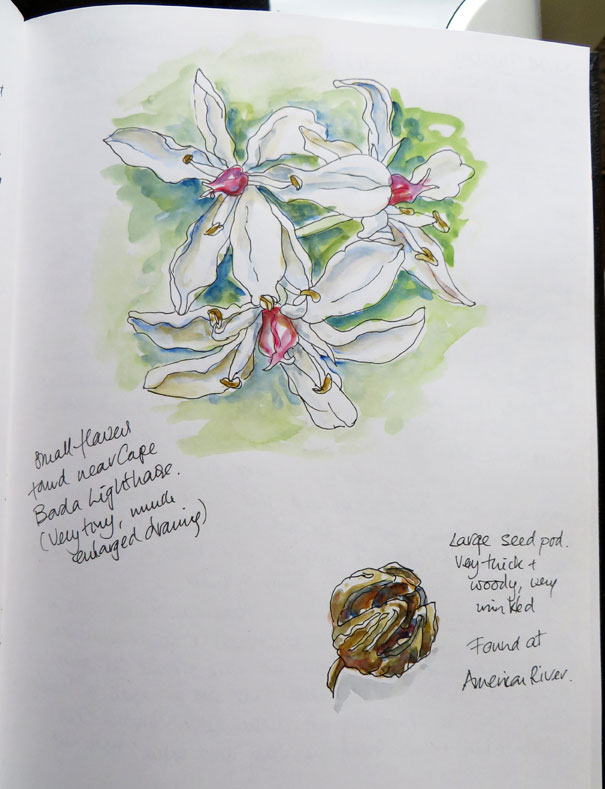 small flowers
found near Cape
Borda Lighthouse.
(Very tiny, much
enlarged drawing)
Large seed pod.
Very thick +
woody, very
wrinkled
Found at
American River.